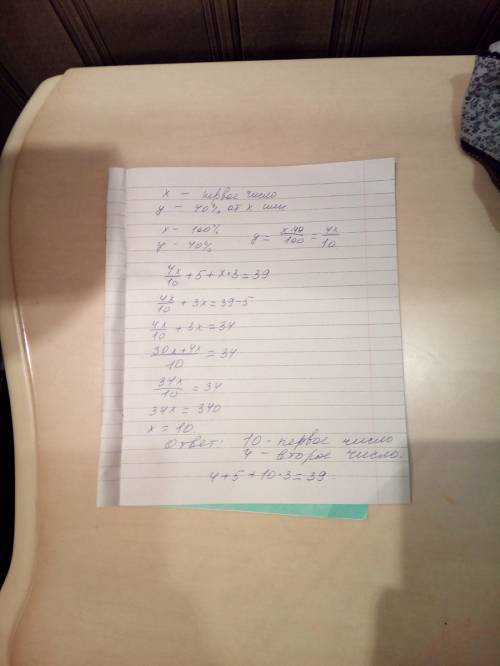 x – первое число
y – 40% от x или
x – 100%
y – 40%
y = x·40/100 = 4x/10
4x/10 + 5 + x·3 = 39
4x/10 + 3x = 39-5
4x/10 + 3x = 34
30x+4x/10 = 34
34x/10 = 34
34x = 340
x = 10.
Ответ: 10 - первое число
4 - второе число.
4+5+10·3=39